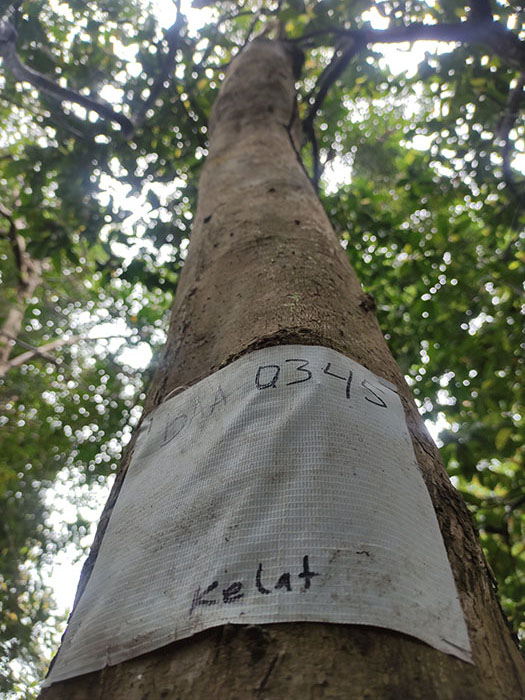 DAA 0345
Kelat